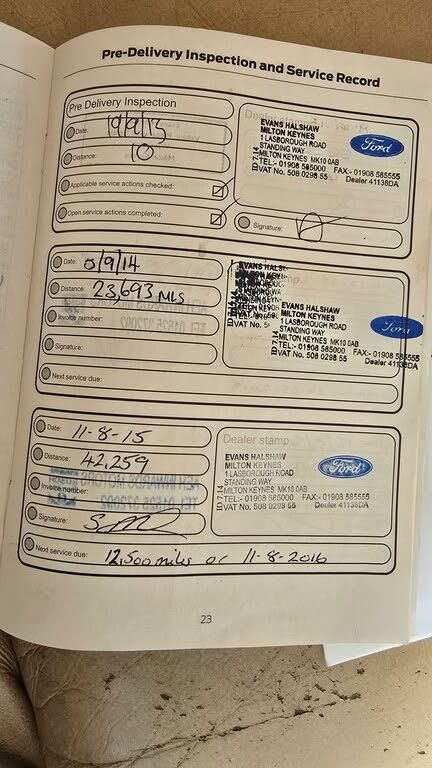 Pre-Delivery Inspection and Service Record
Pre Delivery Inspection
Date: 19/9/13
Distance: 10
Applicable service actions checked:
Open service actions completed:
Dealer stamp
EVANS HALSHAW
MILTON KEYNES
1 LASBOROUGH ROAD
STANDING WAY
MILTON KEYNES MK10 0AB
TEL:- 01908 585000 FAX:- 01908 585555
VAT No. 508 0298 55 Dealer 41138DA
ID 7.14
Ford
Signature:
Date: /9/14
Distance: 23,693 MLS
Invoice number:
Signature:
Next service due:
EVANS HALS
EVANS HALSHAW
MILTON KEYNES
1 LASBOROUGH ROAD
STANDING WAY
MILTON KEYNES MK10 0AB
TEL:- 01908 585000 FAX:- 01908 585555
VAT No. 508 0298 55 Dealer 41138DA
ID 7.14
Ford
Date: 11-8-15
Distance: 42,259
Invoice number:
Signature:
Next service due: 12,500 miles or 11-8-2016
Dealer stamp
EVANS HALSHAW
MILTON KEYNES
1 LASBOROUGH ROAD
STANDING WAY
MILTON KEYNES MK10 0AB
TEL:- 01908 585000 FAX:- 01908 585555
VAT No. 508 0298 55 Dealer 41138DA
ID 7.14
Ford
23